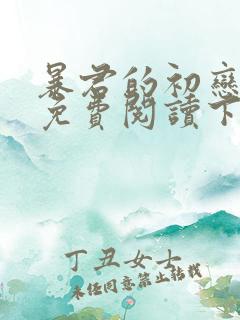 暴君的初戀
免費閱讀下
丁丑女士
未經同意禁止轉載